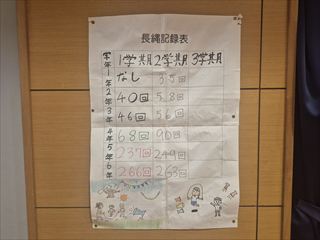 長縄記録表
学年 1学期 2学期 3学期
1年 なし 35回
2年 40回 58回
3年 46回 56回
4年 68回 90回
5年 237回 249回
6年 266回 263回